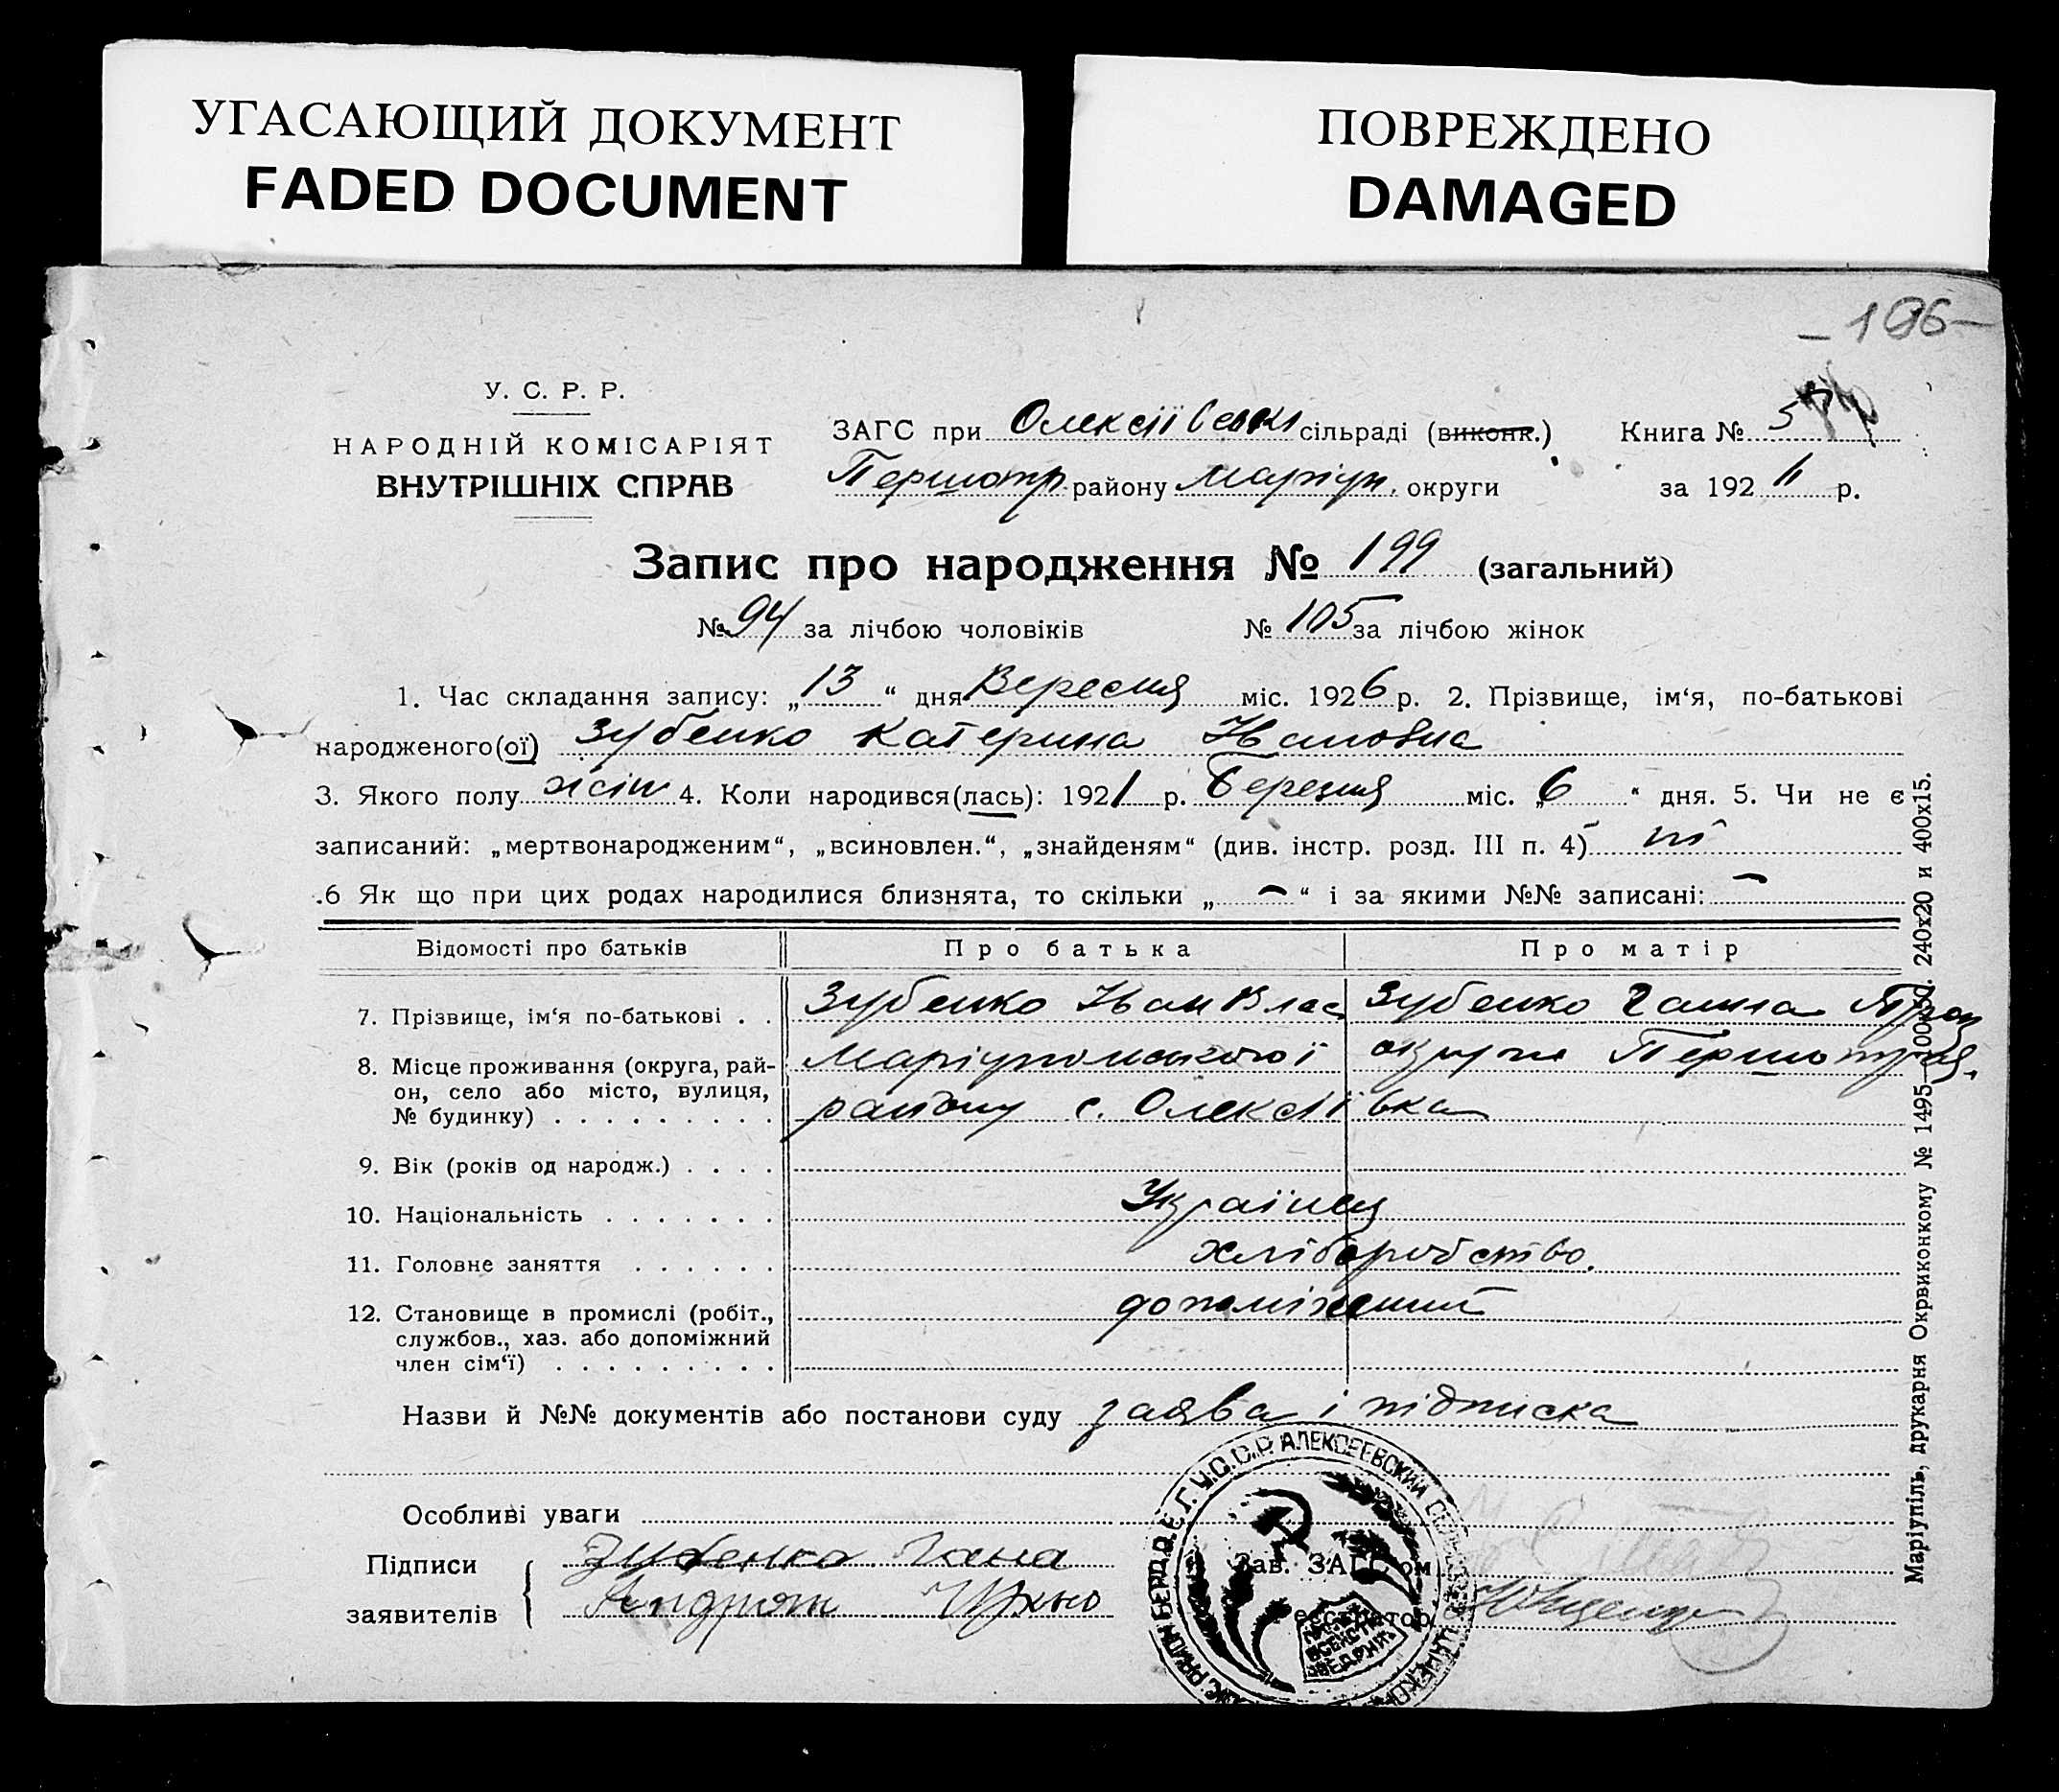 УГАСАЮЩИЙ ДОКУМЕНТ
FADED DOCUMENT
ПОВРЕЖДЕНО
DAMAGED
У. С. Р. Р.
НАРОДНІЙ КОМІСАРІЯТ
ВНУТРІШНІХ СПРАВ
ЗАГС при Олексіївськ сільраді (виконк.) Книга № 5
Першотр. району Маріуп. округи за 192 р.
Запис про народження № 199 (загальний)
№ 94 за лічбою чоловіків № 105 за лічбою жінок
1. Час складання запису: „13“ дня Вересня міс. 1926 р. 2. Прізвище, ім‘я, по-батькові
народженого(ої) Зубенко Катерина Івановна
3. Якого полу жін 4. Коли народився(лась): 1921 р. Березня міс. „6“ дня. 5. Чи не є
записаний: „мертвонародженим“, „всиновлен.“, „знайденям“ (див. інстр. розд. III п. 4) ні
.6 Як що при цих родах народилися близнята, то скільки „ — “ і за якими №№ записані: —
Відомості про батьків Про батька Про матір
7. Прізвище, ім‘я по-батькові . . Зубенко Іван Влас Зубенко Ганна
8. Місце проживання (округа, рай- Маріупольської округи Першотр
он, село або місто, вулиця, району с. Олексіївка
№ будинку) . . . . . . . . .
9. Вік (років од народж.) . . . .
10. Національність . . . . . . . Українец
11. Головне заняття . . . . . . хліборобство.
12. Становище в промислі (робіт., допоміжний
службов., хаз. або допоміжний
член сім‘ї) . . . . . . . . .
Назви й №№ документів або постанови суду заява і підписка
Особливі уваги
Підписи Зубенко Гана
заявителів
Зав. ЗАГС‘ом
Реєстратор
У.С.С.Р. АЛЕКСЕЕВСКИЙ
Маріупіль, друкарня Окрвиконкому № 1495— 240x20 и 400x15.